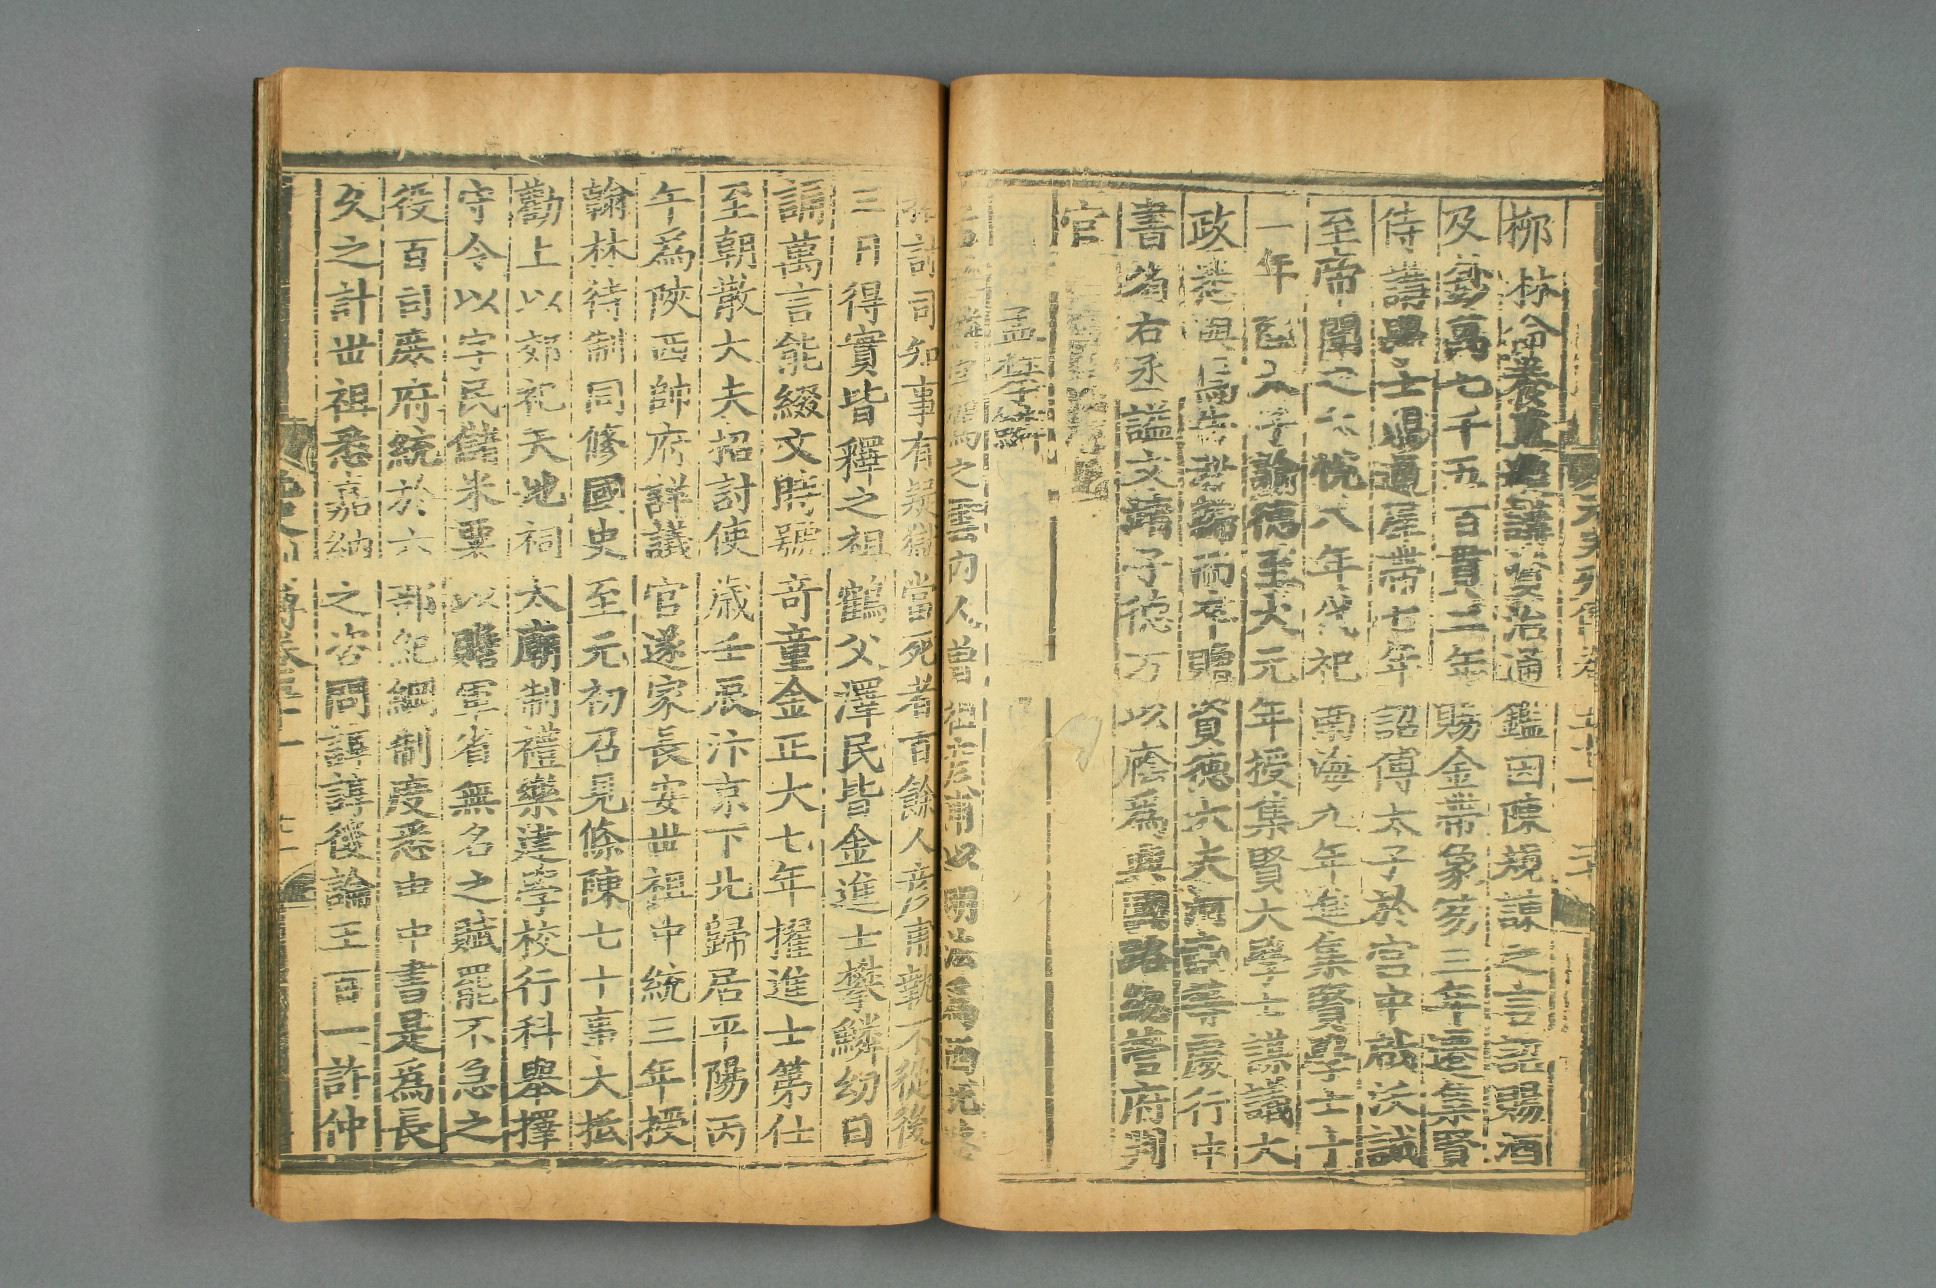 柳林命養直進講資治通鑑因陳規諫之言詔賜酒
及鈔萬七千五百貫二年賜金帶象笏三年遷集賢
侍講學士賜通犀帶七年詔傅太子於宮中啟沃誠
至帝聞之大悅八年代祀南海九年進集賢學士十
一年陞太子諭德至大元年授集賢大學士謀議大
政悉與焉告老歸而卒贈資德大夫河南等處行中
書省右丞謚文靖子德方以廕爲興國路緫管府判
官
孟攀鱗
駕之雲內人曾祖彥甫以明法爲西北路
招討司知事有疑獄當死者百餘人彥甫執不從後
三日得實皆釋之祖鶴父澤民皆金進士攀鱗幼日
誦萬言能綴文時號奇童金正大七年擢進士第仕
至朝散大夫招討使歲壬辰汴京下北歸居平陽丙
午爲陝西帥府詳議官遂家長安世祖中統三年授
翰林待制同修國史至元初召見條陳七十事大抵
勸上以郊祀天地祠太廟制禮樂建學校行科舉擇
守令以字民儲米粟以贍軍省無名之賦罷不急之
役百司庶府統於六部紀綱制度悉由中書是爲長
久之計世祖悉嘉納之咨問諄諄後論王百一許仲